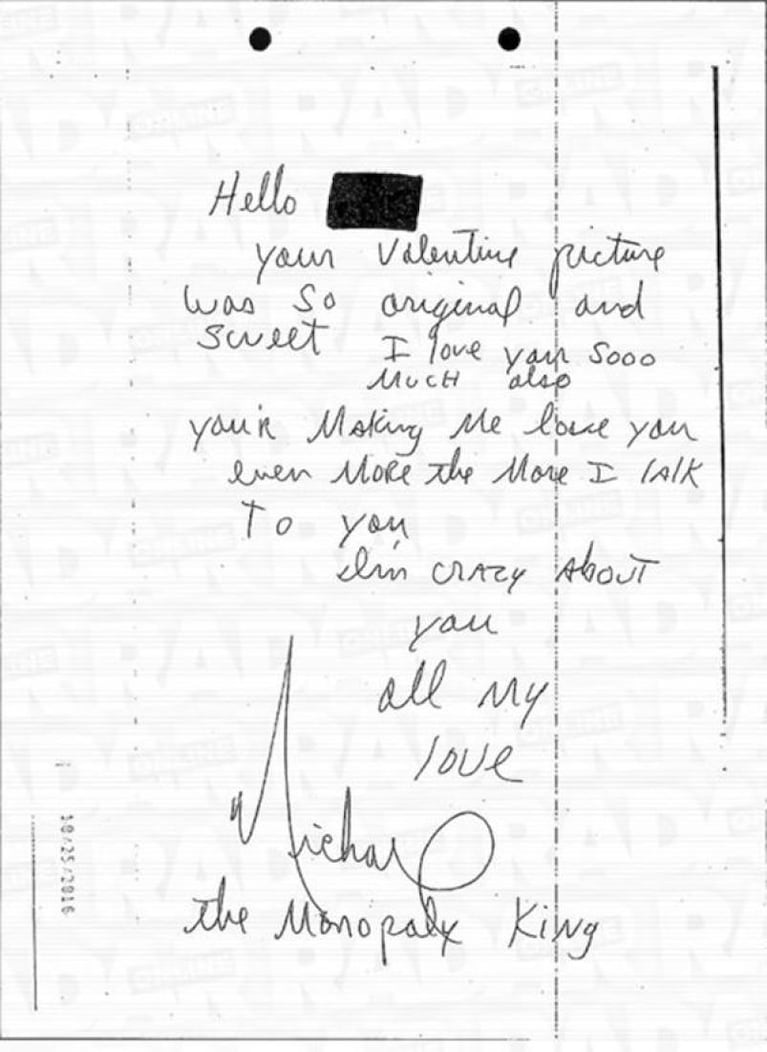 Hello
your Valentine picture
was so original and
sweet I love you sooo
much also
you'r Making Me love you
even More the More I talk
To you
I'm crazy about
you
all my
love
Michael
the Monopaly King
10/25/2016